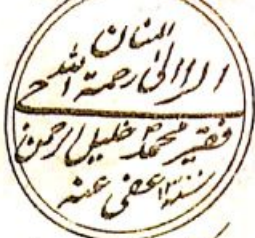 المنان
الراجی الی رحمة الله
فقیر محمد خلیل الرحمن
عفی عنه